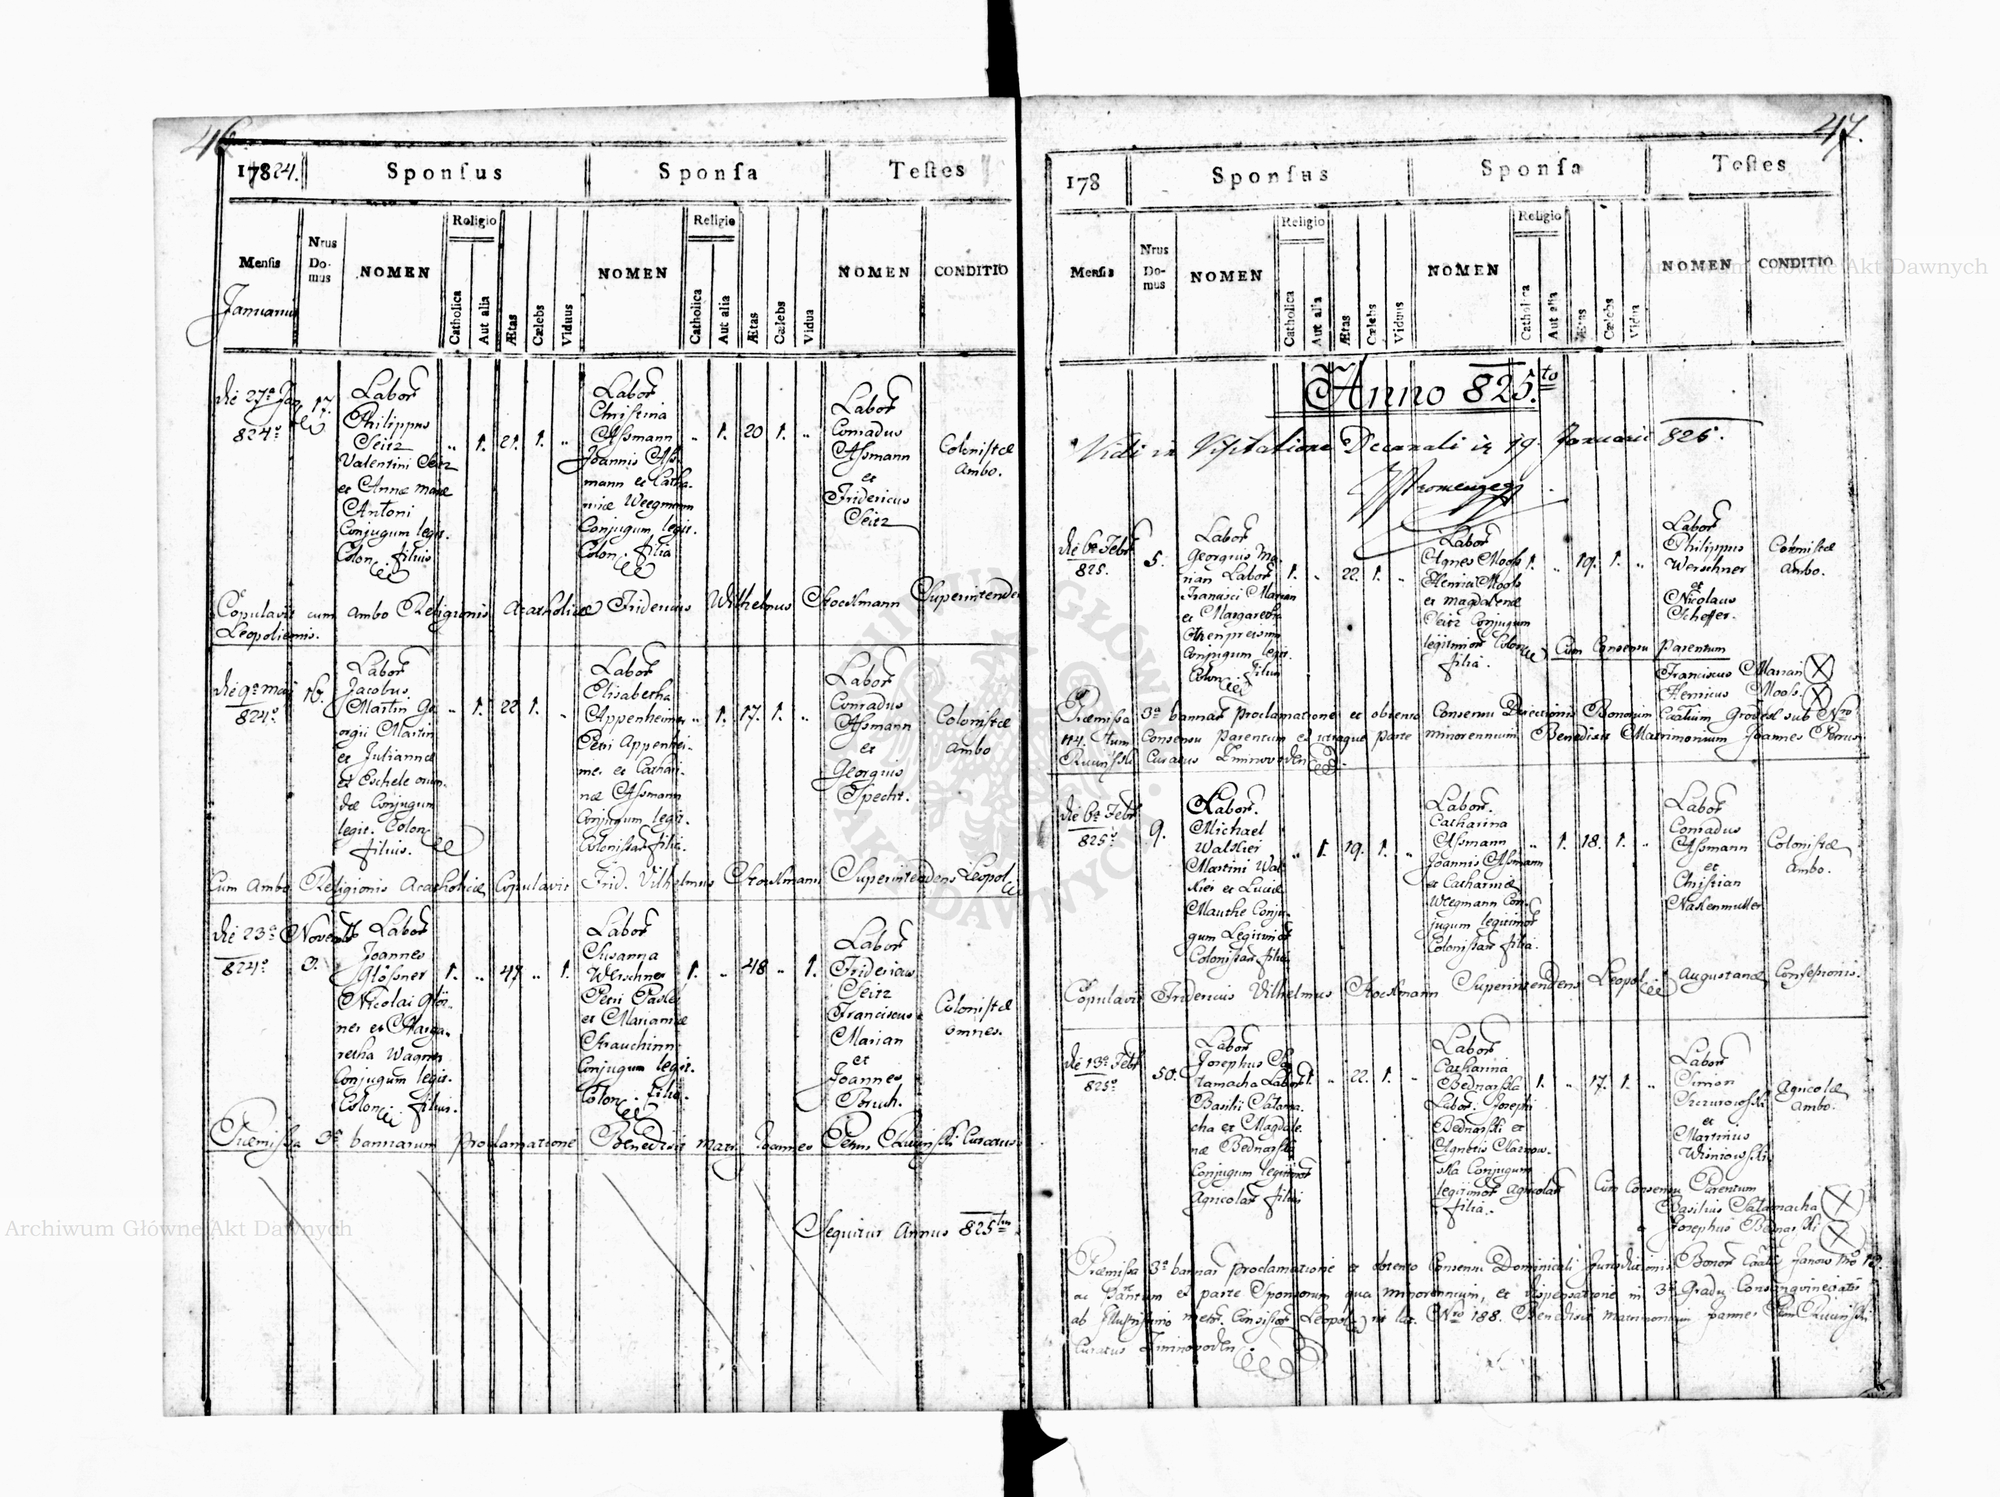 46
17824. Sponsus Sponsa Testes
Mensis Nrus Domus NOMEN Religio Catholica Aut alia Ætas Cælebs Viduus NOMEN Religio Catholica Aut alia Ætas Cælebs Vidua NOMEN CONDITIO
Januarius
die 27a Jan
824o
17.
Labor
Philippus
Seitz
Valentini Seitz
et Annæ Mariæ
Antoni
Conjugum legit.
Colon. filius
„ 1. 21. 1. „
Labor
Christina
Assmann
Joannis Ass-
mann et Catha-
rinæ Weegmann
Conjugum legit.
Colon. filia
„ 1. 20 1. „
Labor
Conradus
Assmann
et
Fridericus
Seitz
Colonistæ
ambo.
Copulavit cum ambo Religionis Acatholicæ Fridericus Wilhelmus Stockmann Superintendens
Leopoliensis.
die 9a maj
824o
16.
Labor
Jacobus
Martin Ge-
orgii Martin
et Juliannæ
et Eschele oriun-
dæ Conjugum
legit. Colon
filius.
„ 1. 22 1. „
Labor
Elisabetha
Appenheimer
Petri Appenhei-
mer et Cathari-
næ Assmann
Conjugum legit.
Colonistar filia.
„ 1. 17. 1. „
Labor
Conradus
Assmann
et
Georgius
Specht.
Colonistæ
ambo
Cum Ambo Religionis Acatholicæ Copulavit Frid. Vilhelmus Stockmann Superintendens Leopol
die 23a Novemb
824o
3.
Labor
Joannes
Glössner
Nicolai Glös-
ner et Marga-
retha Wagner
Conjugum legit.
Colon. filius.
1. „ 47 „ 1.
Labor
Susanna
Werschner
Petri
et Mariannæ
Strauchinn
Conjugum legit.
Colon. filia.
1. „ 48 „ 1.
Labor
Fridericus
Seitz
Franciscus
Marian
et
Joannes
Colonistæ
omnes.
Præmissa 3a bannarum proclamatione Benedixit matr. Joannes Petrus Curatus
Sequitur Annus 825tus
47.
178 Sponsus Sponsa Testes
Mensis Nrus Domus NOMEN Religio Catholica Aut alia Ætas Cælebs Viduus NOMEN Religio Catholica Aut alia Ætas Cælebs Vidua NOMEN CONDITIO
Anno 825.to
Vidi in Visitatione Decanali die 19 Januarii 825.
die 6a Febr
825.
5.
Labor
Georgius Ma-
rian Labor
Francisci Marian
et Margaretha
Conjugum legit.
Colon. filius
1. „ 22. 1. „
Labor
Agnes Moos
Henrici Moos
et Magdalenæ
Seitz Conjugum
legitimor Colon
filia.
1. „ 19. 1. „
Labor
Philippus
Werschner
et
Nicolaus
Scheffer.
Colonistæ
ambo.
Cum Consensu Parentum
Franciscus Marian X
Henricus Moos. X
Præmissa 3a bannar proclamatione et obtento Consensu Directionis Bonorum Cæalium Grodek sub Nro
114. tum Consensu Parentum ex utraque parte minorennium, Benedixit Matrimonium Joannes Petrus
Curatus
die 6a Febr
825o
9.
Labor.
Michael
Walskei
Martini Wals-
kei et Luciæ
Mauthe Conju-
gum Legitimor
Colonistar filius
„ 1. 19. 1. „
Labor.
Catharina
Assmann
Joannis Assmann
et Catharinæ
Weegmann Con-
jugum legitimor
Colonistar filia.
„ 1. 18. 1. „
Labor
Conradus
Assmann
et
Christian
Nakenmuller
Colonistæ
ambo.
Copulavit Fridericus Vilhelmus Stockmann Superintendens Leopol. Augustanæ Confessionis.
die 13a Febr
825o
50.
Labor
Josephus Ca-
tamacha Labor
Basilii Catama-
cha et Magdale-
næ Bednarska
Conjugum legitimor
Agricolar filius
1. „ 22. 1. „
Labor
Catharina
Bednarska
Labor. Josephi
Bednarski et
Agnetis Czarnow-
ska Conjugum
legitimor Agricolar
filia.
1. „ 17. 1. „
Labor
Simon
et
Martinus
Wisniowski
Agricolæ
ambo.
Cum Consensu Parentum
Basilius Catamacha X
Josephus Bednarski X
Præmissa 3a bannar proclamatione et obtento Consensu Dominicali Jurisdictionis Bonor Janow Nro 12
ac Parentum ex parte Sponsorum qua minorennium, et dispensatione in 3o Gradu Consangvineitatis
ab Illustrissimo metr. Consistor Leopol. Nro 188. Benedixit matrimonium Joannes
Curatus
Archiwum Główne Akt Dawnych
Archiwum Główne Akt Dawnych
ARCHIWUM GŁÓWNE AKT DAWNYCH